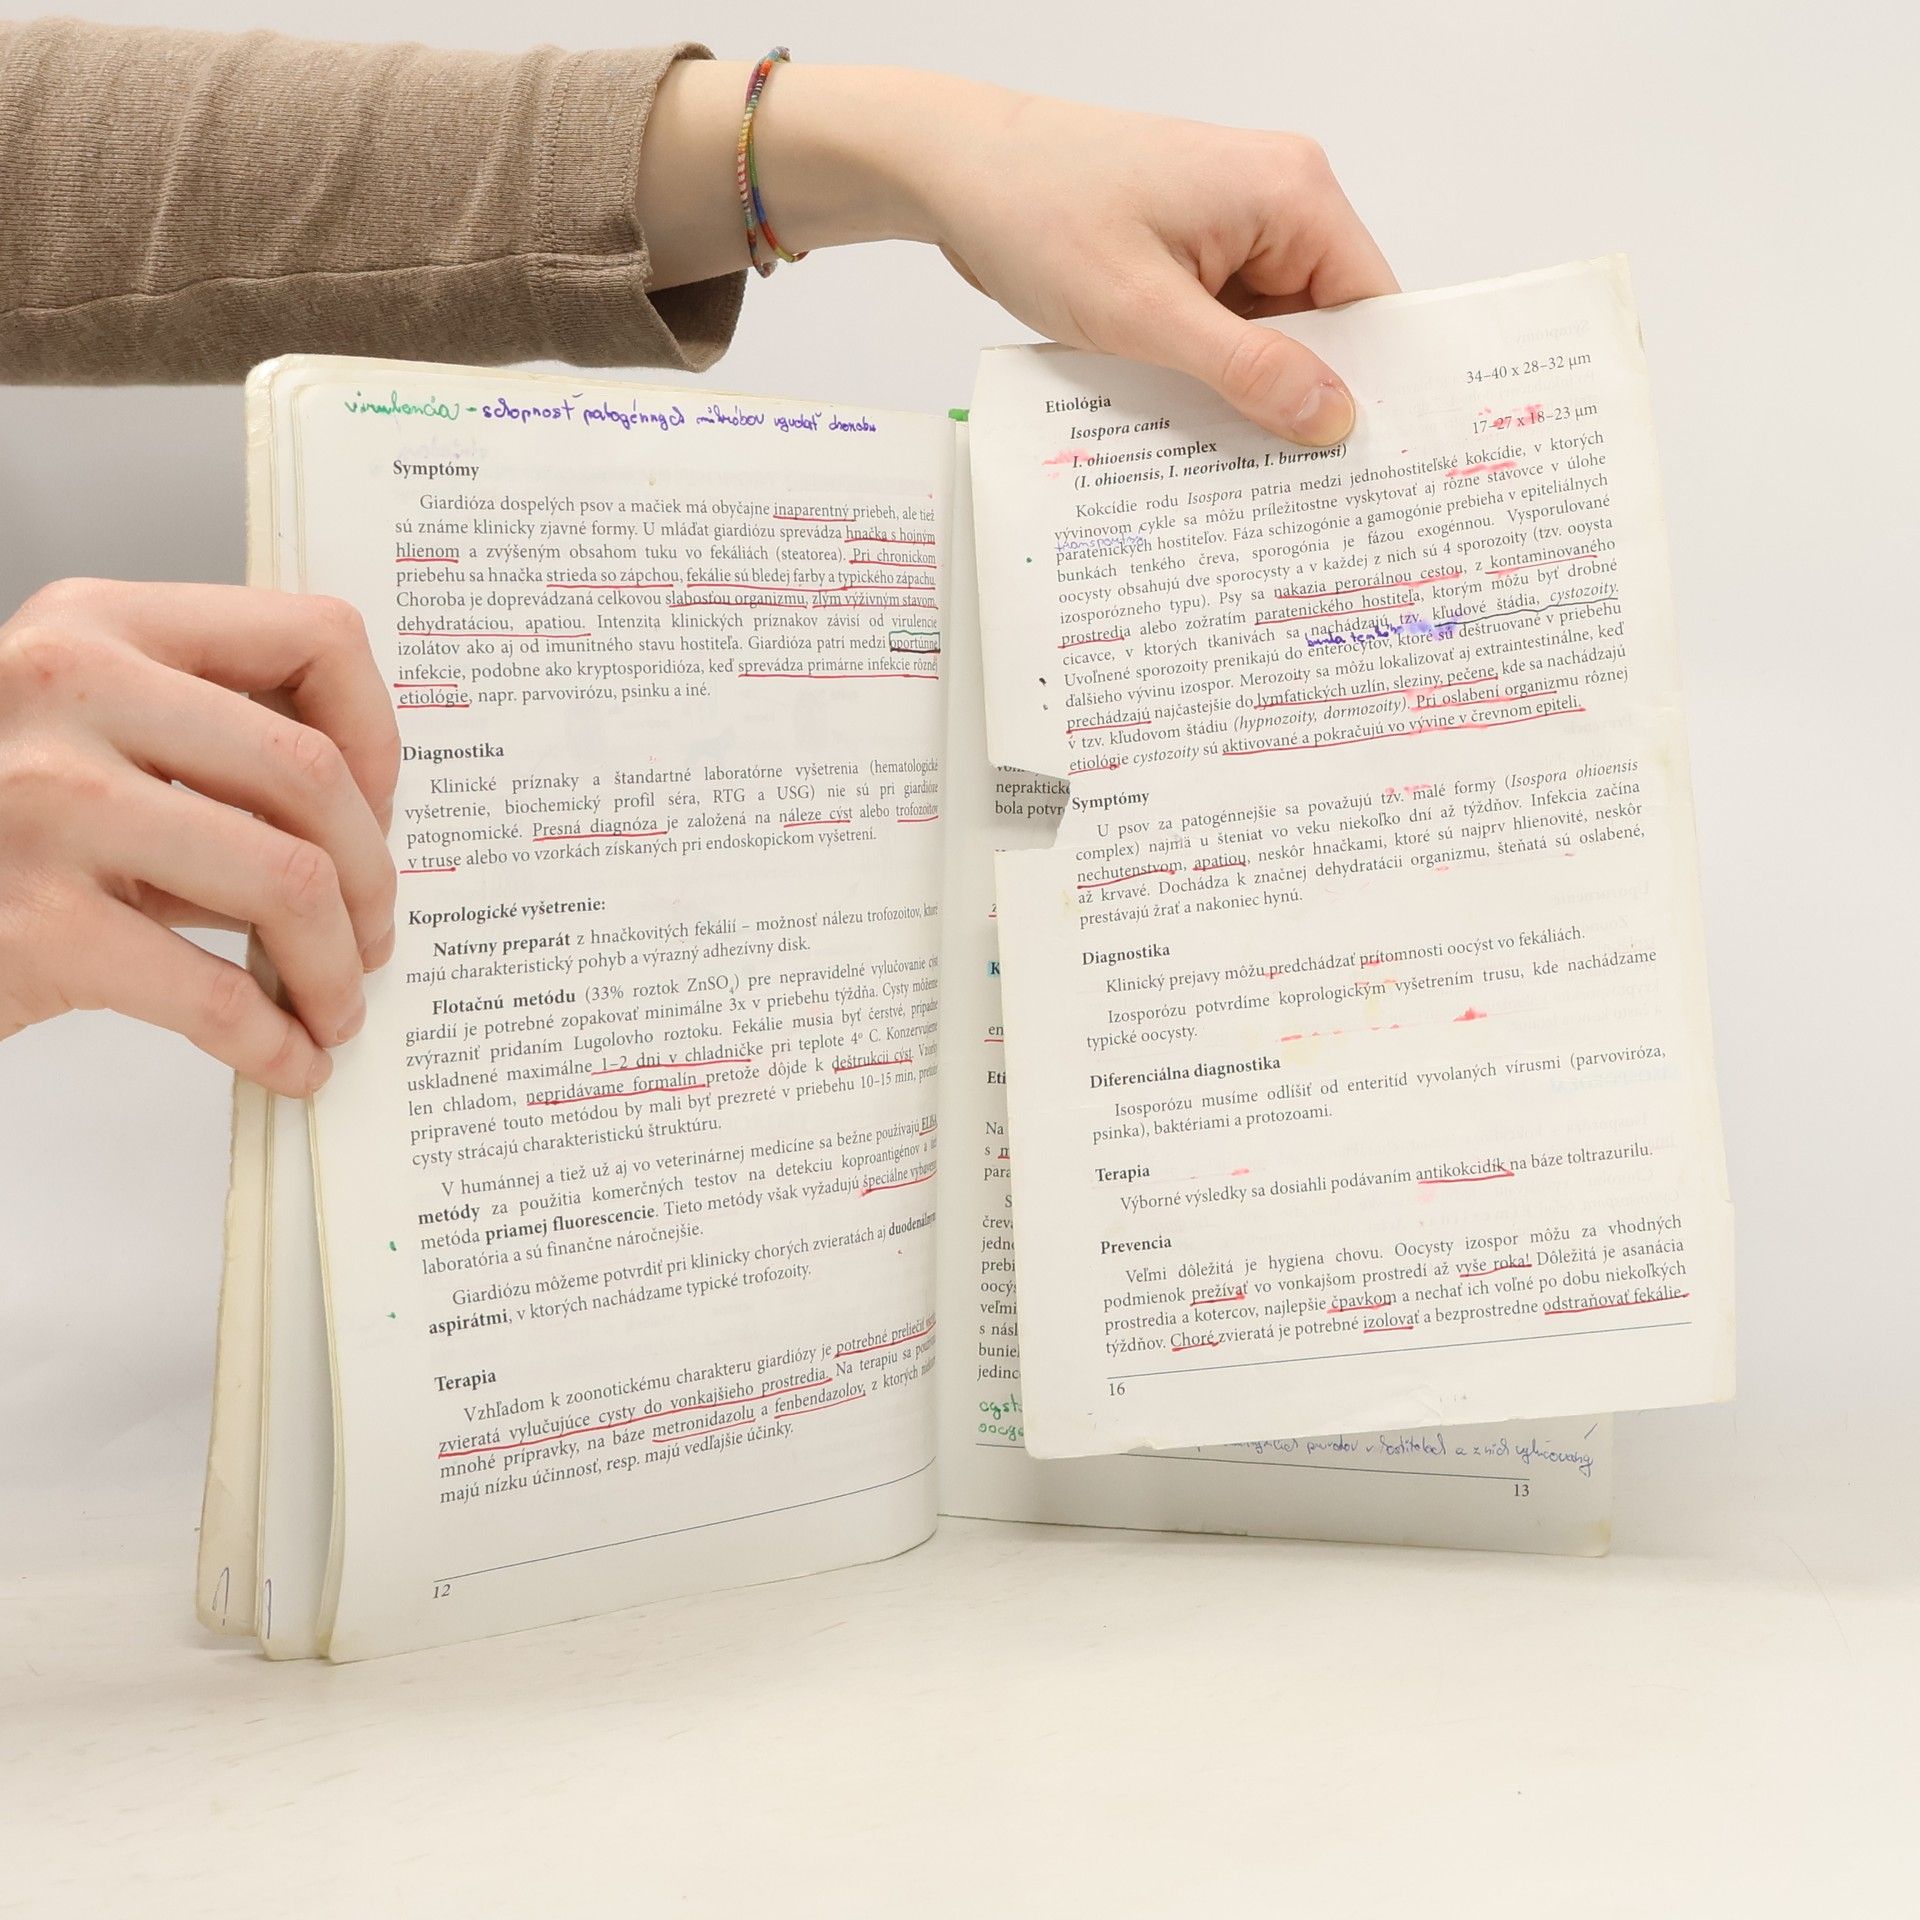 virulencia - schopnosť patogénnych mikróbov vyvolať chorobu
Symptómy
Giardióza dospelých psov a mačiek má obyčajne inaparentný priebeh, ale tiež
sú známe klinicky zjavné formy. U mláďat giardiózu sprevádza hnačka s hojným
hlienom a zvýšeným obsahom tuku vo fekáliách (steatorea). Pri chronickom
priebehu sa hnačka strieda so zápchou, fekálie sú bledej farby a typického zápachu.
Choroba je doprevádzaná celkovou slabosťou organizmu, zlým výživným stavom,
dehydratáciou, apatiou. Intenzita klinických príznakov závisí od virulencie
izolátov ako aj od imunitného stavu hostiteľa. Giardióza patrí medzi oportúnne
infekcie, podobne ako kryptosporidióza, keď sprevádza primárne infekcie rôznej
etiológie, napr. parvovirózu, psinku a iné.
Diagnostika
Klinické príznaky a štandartné laboratórne vyšetrenia (hematologické
vyšetrenie, biochemický profil séra, RTG a USG) nie sú pri giardióze
patognomické. Presná diagnóza je založená na náleze cýst alebo trofozoitov
v truse alebo vo vzorkách získaných pri endoskopickom vyšetrení.
Koprologické vyšetrenie:
Natívny preparát z hnačkovitých fekálií – možnosť nálezu trofozoitov, ktoré
majú charakteristický pohyb a výrazný adhezívny disk.
Flotačnú metódu (33% roztok ZnSO4) pre nepravidelné vylučovanie cýst
giardií je potrebné zopakovať minimálne 3x v priebehu týždňa. Cysty môžeme
zvýrazniť pridaním Lugolovho roztoku. Fekálie musia byť čerstvé, prípadne
uskladnené maximálne 1–2 dni v chladničke pri teplote 4° C. Konzervujeme
len chladom, nepridávame formalín pretože dôjde k deštrukcii cýst. Vzorky
pripravené touto metódou by mali byť prezreté v priebehu 10–15 min, pretože
cysty strácajú charakteristickú štruktúru.
V humánnej a tiež už aj vo veterinárnej medicíne sa bežne používajú ELISA
metódy za použitia komerčných testov na detekciu koproantigénov a tiež
metóda priamej fluorescencie. Tieto metódy však vyžadujú špeciálne vybavené
laboratória a sú finančne náročnejšie.
Giardiózu môžeme potvrdiť pri klinicky chorých zvieratách aj duodenálnym
aspirátmi, v ktorých nachádzame typické trofozoity.
Terapia
Vzhľadom k zoonotickému charakteru giardiózy je potrebné preliečiť
zvieratá vylučujúce cysty do vonkajšieho prostredia. Na terapiu sa
mnohé prípravky, na báze metronidazolu a fenbendazolov, z ktorých
majú nízku účinnosť, resp. majú vedľajšie účinky.
12
Etiológia
Isospora canis 34–40 x 28–32 µm
I. ohioensis complex 17–27 x 18–23 µm
(I. ohioensis, I. neorivolta, I. burrowsi)
Kokcídie rodu Isospora patria medzi jednohostiteľské kokcídie, v ktorých
vývinovom cykle sa môžu príležitostne vyskytovať aj rôzne stavovce v úlohe
paratenických hostiteľov. Fáza schizogónie a gamogónie prebieha v epiteliálnych
bunkách tenkého čreva, sporogónia je fázou exogénnou. Vysporulované
oocysty obsahujú dve sporocysty a v každej z nich sú 4 sporozoity (tzv. ooysta
izosporózneho typu). Psy sa nakazia perorálnou cestou, z kontaminovaného
prostredia alebo zožratím paratenického hostiteľa, ktorým môžu byť drobné
cicavce, v ktorých tkanivách sa nachádzajú tzv. kľudové štádia, cystozoity.
Uvoľnené sporozoity prenikajú do enterocytov, ktoré sú deštruované v priebehu
ďalšieho vývinu izospor. Merozoity sa môžu lokalizovať aj extraintestinálne, keď
prechádzajú najčastejšie do lymfatických uzlín, sleziny, pečene, kde sa nachádzajú
v tzv. kľudovom štádiu (hypnozoity, dormozoity). Pri oslabení organizmu rôznej
etiológie cystozoity sú aktivované a pokračujú vo vývine v črevnom epiteli.
Symptómy
U psov za patogénnejšie sa považujú tzv. malé formy (Isospora ohioensis
complex) najmä u šteniat vo veku niekoľko dní až týždňov. Infekcia začína
nechutenstvom, apatiou, neskôr hnačkami, ktoré sú najprv hlienovité, neskôr
až krvavé. Dochádza k značnej dehydratácii organizmu, šteňatá sú oslabené,
prestávajú žrať a nakoniec hynú.
Diagnostika
Klinický prejavy môžu predchádzať prítomnosti oocýst vo fekáliách.
Izosporózu potvrdíme koprologickým vyšetrením trusu, kde nachádzame
typické oocysty.
Diferenciálna diagnostika
Isosporózu musíme odlíšiť od enteritíd vyvolaných vírusmi (parvoviróza,
psinka), baktériami a protozoami.
Terapia
Výborné výsledky sa dosiahli podávaním antikokcidík na báze toltrazurilu.
Prevencia
Veľmi dôležitá je hygiena chovu. Oocysty izospor môžu za vhodných
podmienok prežívať vo vonkajšom prostredí až vyše roka! Dôležitá je asanácia
prostredia a kotercov, najlepšie čpavkom a nechať ich voľné po dobu niekoľkých
týždňov. Choré zvieratá je potrebné izolovať a bezprostredne odstraňovať fekálie.
16
nepraktické
bola potvr
Eti
Na
s
para
črev
jedno
prebi
oocys
veľmi
s násl
bunie
jedinc
13